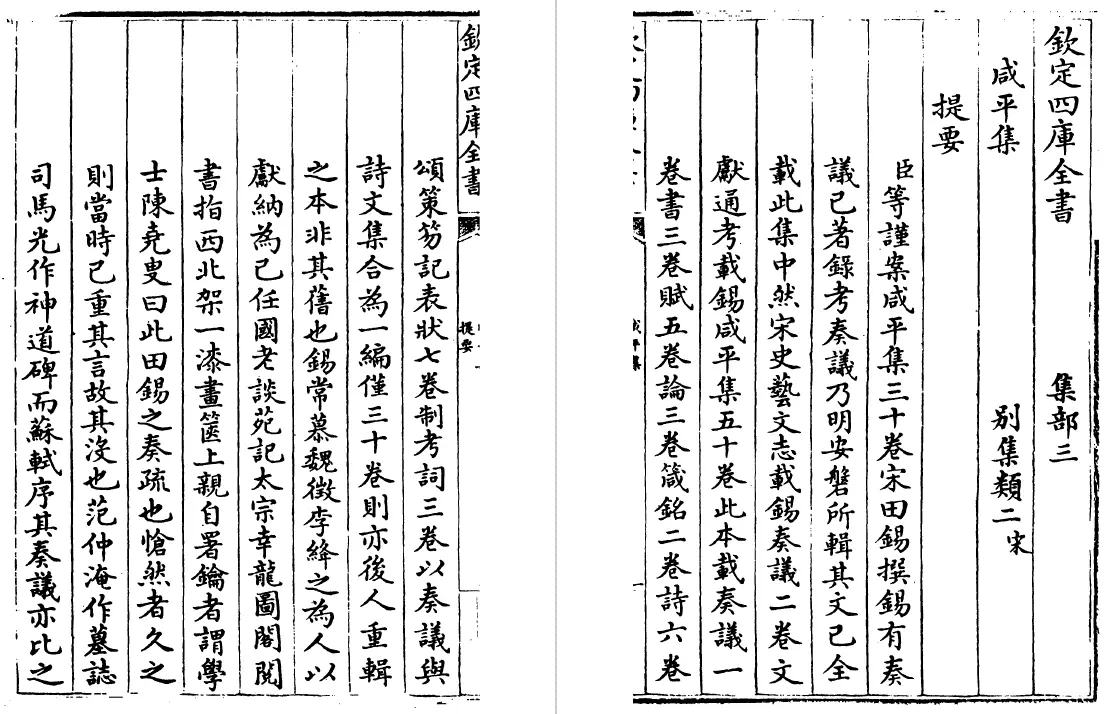 欽定四庫全書 集部三
咸平集 別集類二宋
提要
臣等謹案咸平集三十卷宋田錫撰錫有奏
議已著錄考奏議乃明安磐所輯其文已全
載此集中然宋史藝文志載錫奏議二卷文
獻通考載錫咸平集五十卷此本載奏議一
卷書三卷賦五卷論三卷箴銘二卷詩六卷
欽定四庫全書
提要
頌策笏記表狀七卷制考詞三卷以奏議與
詩文集合為一編僅三十卷則亦後人重輯
之本非其舊也錫常慕魏徵李絳之為人以
獻納為己任國老談苑記太宗幸龍圖閣閲
書指西北架一漆畫篋上親自署鑰者謂學
士陳堯叟曰此田錫之奏疏也愴然者久之
則當時已重其言故其沒也范仲淹作墓誌
司馬光作神道碑而蘇軾序其奏議亦比之